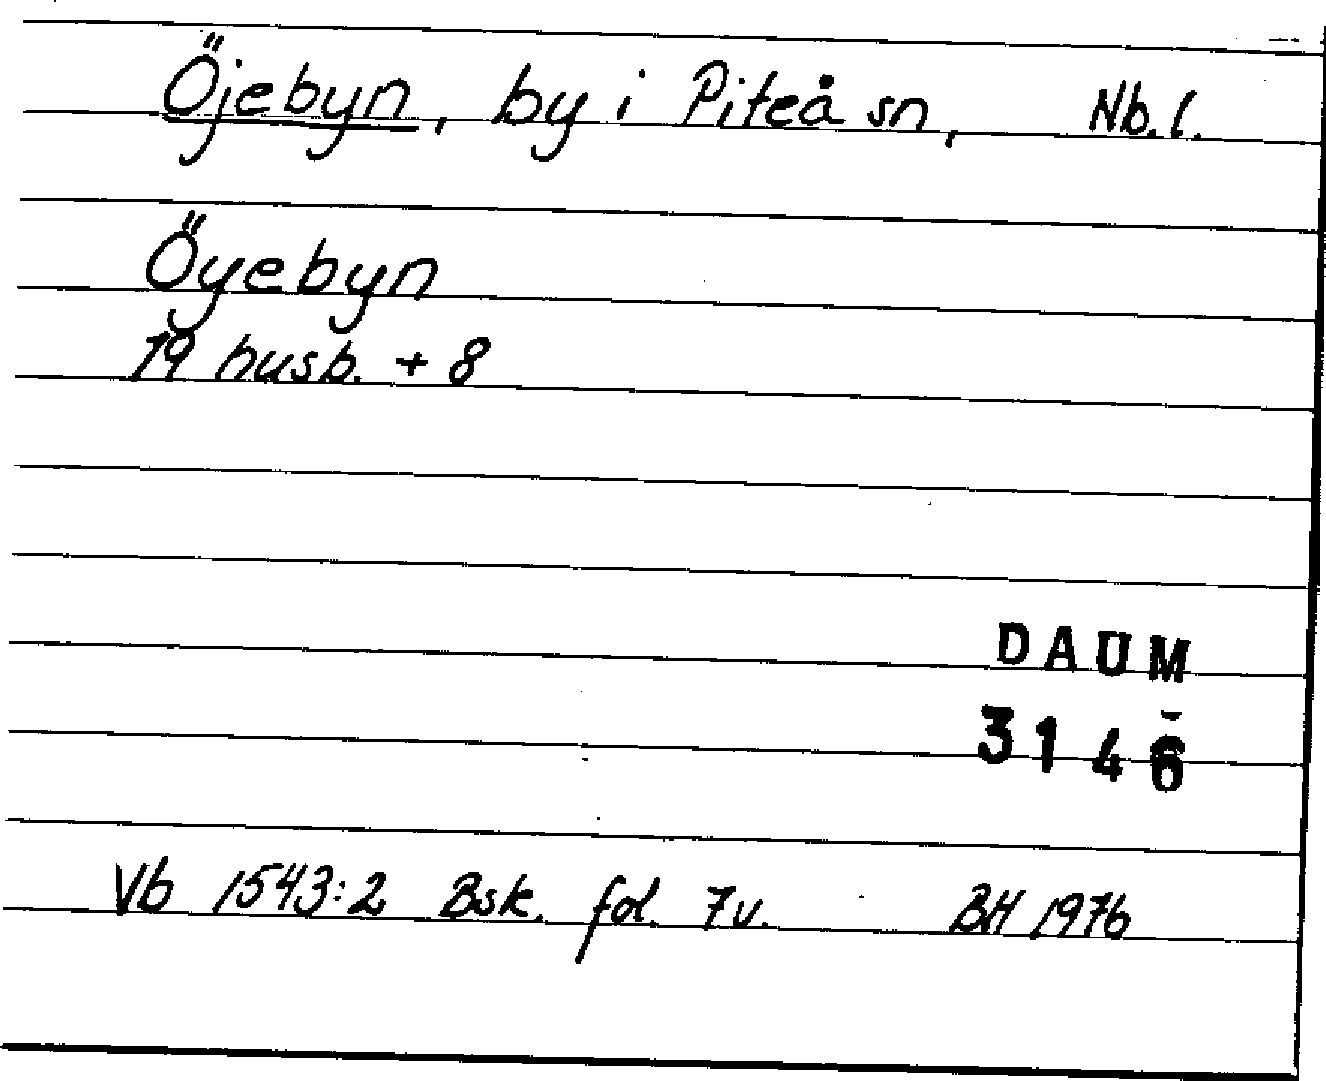 Öjebyn, by i Piteå sn, Nb. l.
Öyebyn
19 husb. + 8
DAUM
3146
Vb 1543:2 Bsk. fol. 7v. BH 1976